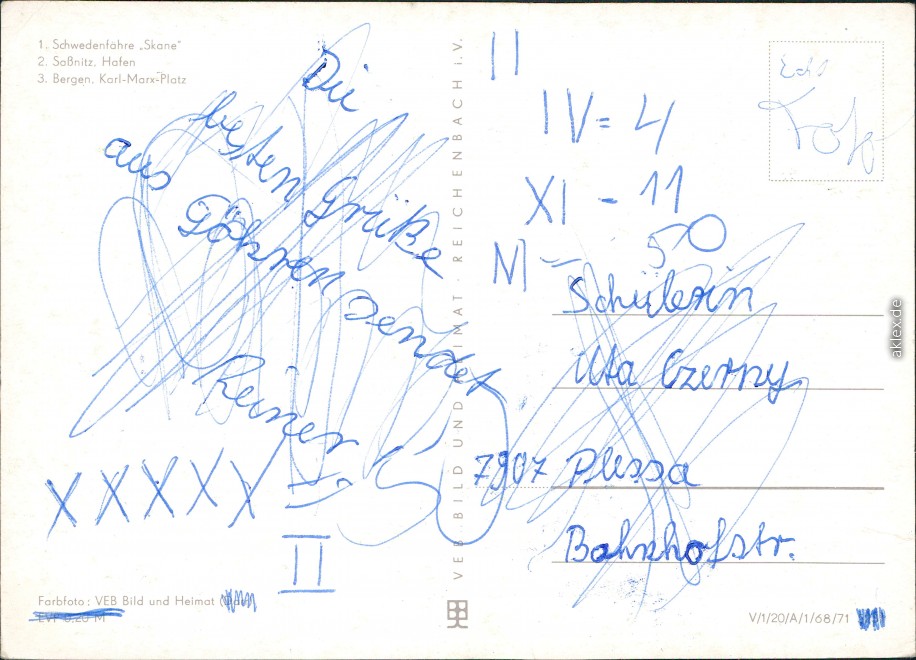 1. Schwedenfähre „Skane"
2. Saßnitz, Hafen
3. Bergen, Karl-Marx-Platz
Die
besten Grüße
aus Göhren sendet
Reiner
XXXXX
II
Farbfoto: VEB Bild und Heimat
EVP 0,20 M
VEB BILD UND HEIMAT · REICHENBACH i. V.
II
IV = 4
XI - 11
50
Schülerin
Uta Czerny
7907 Plessa
Bahnhofstr.
V/1/20/A/1/68/71
aklex.de